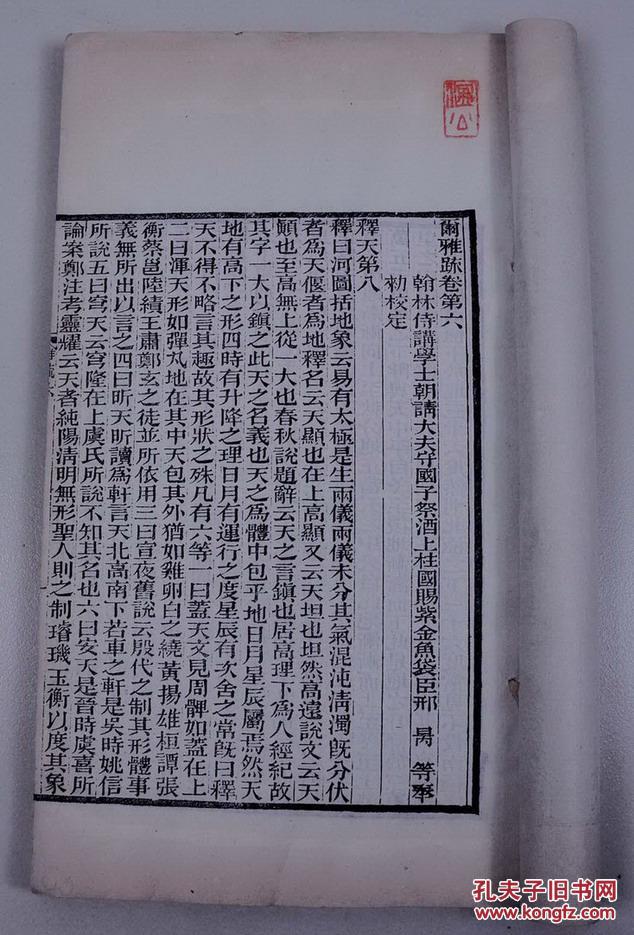 爾雅疏卷第六
翰林侍講學士朝請大夫守國子祭酒上柱國賜紫金魚袋臣邢昺等奉
勑校定
釋天第八
釋曰河圖括地象云易有太極是生兩儀兩儀未分其氣混沌淸濁旣分伏
者為天偃者為地釋名云天顯也在上高顯又云天坦也坦然高遠說文云天
顚也至高無上從一大也春秋說題辭云天之言鎭也居高理下為人經紀故
其字一大以鎭之此天之名義也天之為體中包乎地日月星辰屬焉然天
地有高下之形四時有升降之理日月有運行之度星辰有次舍之常旣曰釋
天不得不略言其趣故其形狀之殊凡有六等一曰蓋天文見周髀如蓋在上
二曰渾天形如彈丸地在其中天包其外猶如雞卵白之繞黃揚雄桓譚張
衡蔡邕陸績王肅鄭玄之徒並所依用三曰宣夜舊說云殷代之制其形體事
義無所出以言之四曰昕天昕讀爲軒言天北高南下若車之軒是吳時姚信
所說五曰穹天云穹隆在上虞氏所說不知其名也六曰安天是晉時虞喜所
論案鄭注考靈耀云天者純陽淸明無形聖人則之制璿璣玉衡以度其象
孔夫子旧书网
www.kongfz.com